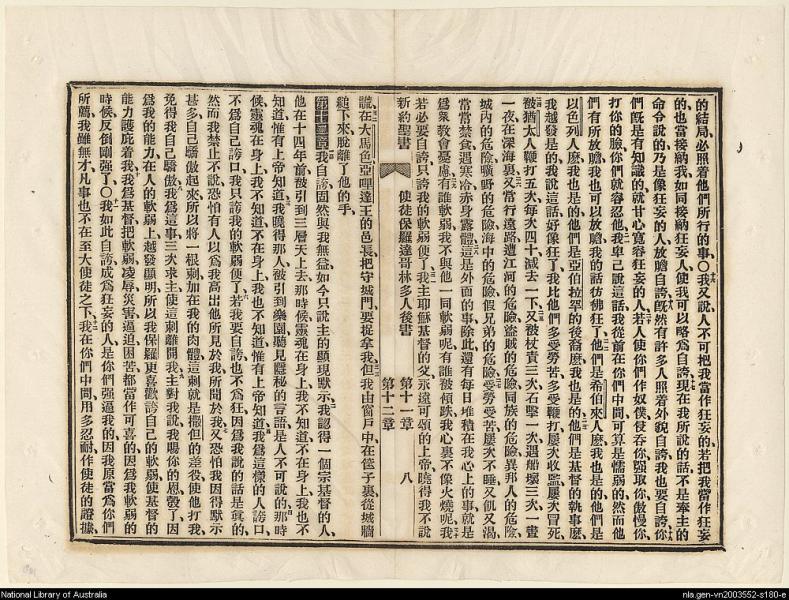 的結局必照着他們所行的事〇我又說人不可把我當作狂妄的若把我當作狂妄
的也當接納我如同接納狂妄人使我可以略爲自誇現在我所說的話不是奉主的
命令說的乃是像狂妄的人放膽自誇旣然有許多人照着外貌自誇我也要自誇你
們旣是有知識的就甘心寬容狂妄的人若人使你們作奴僕侵吞你強取你傲慢你
打你的臉你們就容忍他我卑己說這話我從前在你們中間可算是懦弱的然而他
們有所放膽我也可以放膽我的話彷彿狂了他們是希伯來人麽我也是的他們是
以色列人麽我也是的他們是亞伯拉罕的後裔麽我也是的他們是基督的執事麽、
我越發是的我說這話好像狂了我比他們多受勞苦多受鞭打屢次收監屢次冒死、
被猶太人鞭打五次每次四十減去一下又被杖責三次石擊一次遇船壞三次一晝
一夜在深海裏又常行遠路遭江河的危險盜賊的危險同族的危險異邦人的危險、
城內的危險曠野的危險海中的危險假兄弟的危險受勞受苦屢次不睡又飢又渴、
常常禁食遇寒冷赤身露體這是外面的事除此還有每日堆積在我心上的事就是
爲衆教會憂慮有誰軟弱我不與他一同軟弱呢有誰被傾跌我心裏不像火燒呢我
若必要自誇只誇我的軟弱便了我主耶穌基督的父永遠可頌的上帝曉得我不說
新約聖書 使徒保羅達哥林多人後書 第十一章 第十二章 八
謊在大馬色亞哩達王的邑長把守城門要捉拿我但我由窗戶中在筐子裏從城牆
縋下來脫離了他的手、
第十二章我自誇固然與我無益如今只說主的顯現默示我認得一個宗基督的人、
他在十四年前被引到三層天上去那時候靈魂在身上我不知道不在身上我也不
知道惟有上帝知道我曉得那人被引到樂園聽見隱秘的言語是人不可說的那時
候靈魂在身上我不知道不在身上我也不知道惟有上帝知道我爲這樣的人誇口、
不爲自己誇口我只誇我的軟弱便了若我要自誇也不爲狂因爲我說的話是眞的
然而我禁止不說恐怕有人以爲我高出他所見於我所聞於我又恐怕我因得默示
甚多自己驕傲起來所以將一根刺加在我的肉體這刺就是撒但的差役使他打我、
免得我自己驕傲我爲這事三次求主使這刺離開我主對我說我賜你的恩彀了因
爲我的能力在人的軟弱上越發顯明所以我保羅更喜歡誇自己的軟弱使基督的
能力護庇着我我爲基督把軟弱凌辱災害逼迫困苦都當作可喜的因爲我軟弱的
時候反倒剛強了〇我如此自誇成爲狂妄的人是你們強逼我的因我原當爲你們
所薦我雖無才凡事也不在至大使徒之下我在你們中間用多忍耐作使徒的證據、
National Library of Australia
nla.gen-vn2003552-s180-e